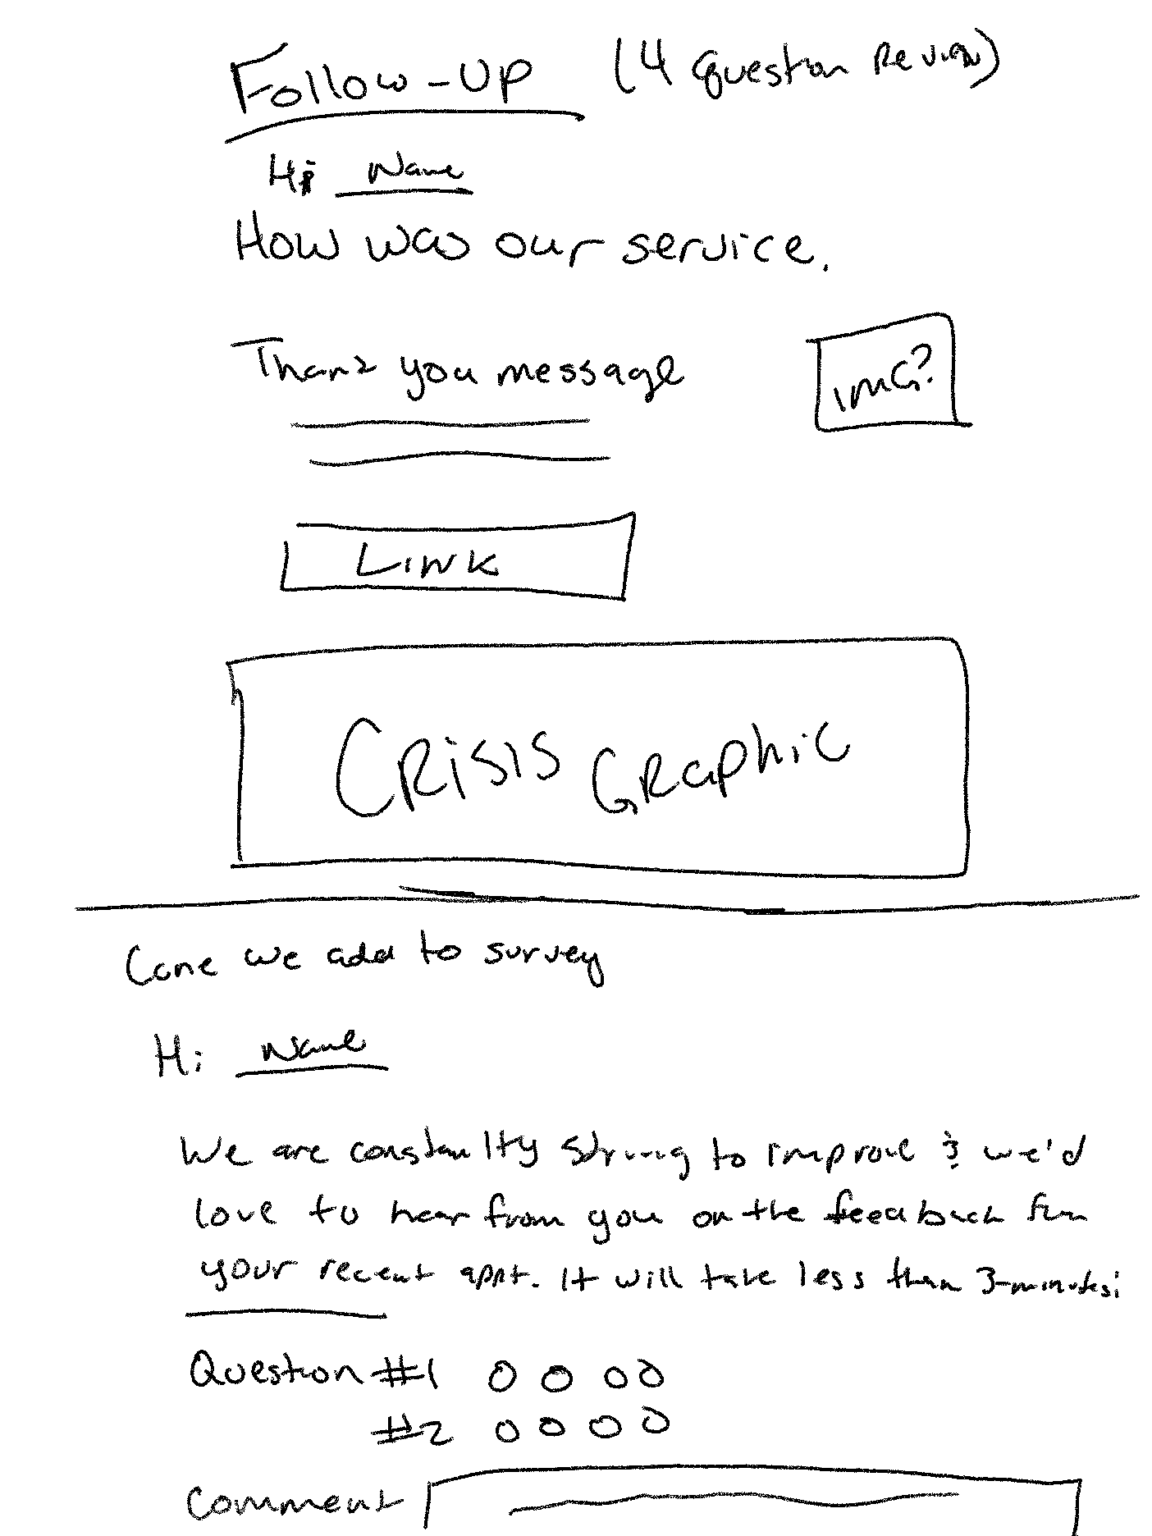 Follow-up (4 Question Review)
Hi Name
How was our service.
Thank you message
IMG?
Link
Crisis Graphic
Cane we add to survey
Hi Name
We are constanlty striving to improve & we'd
love to hear from you on the feedback from
your recent appt. It will take less than 3-minutes:
Question #1 O O O O
#2 O O O O
Comment